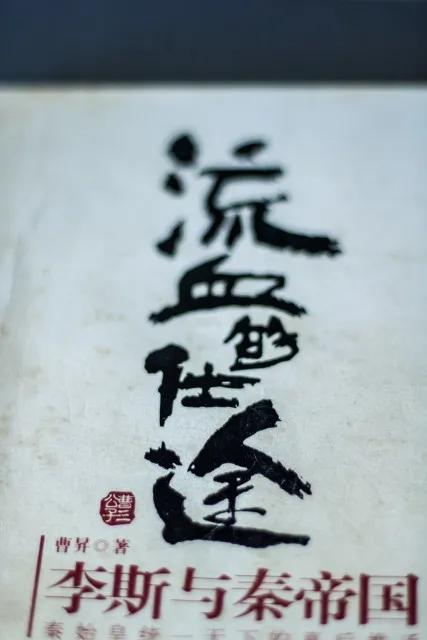 流血的仕途
曹三公子
曹昇◎著
李斯与秦帝国
秦始皇统一天下的